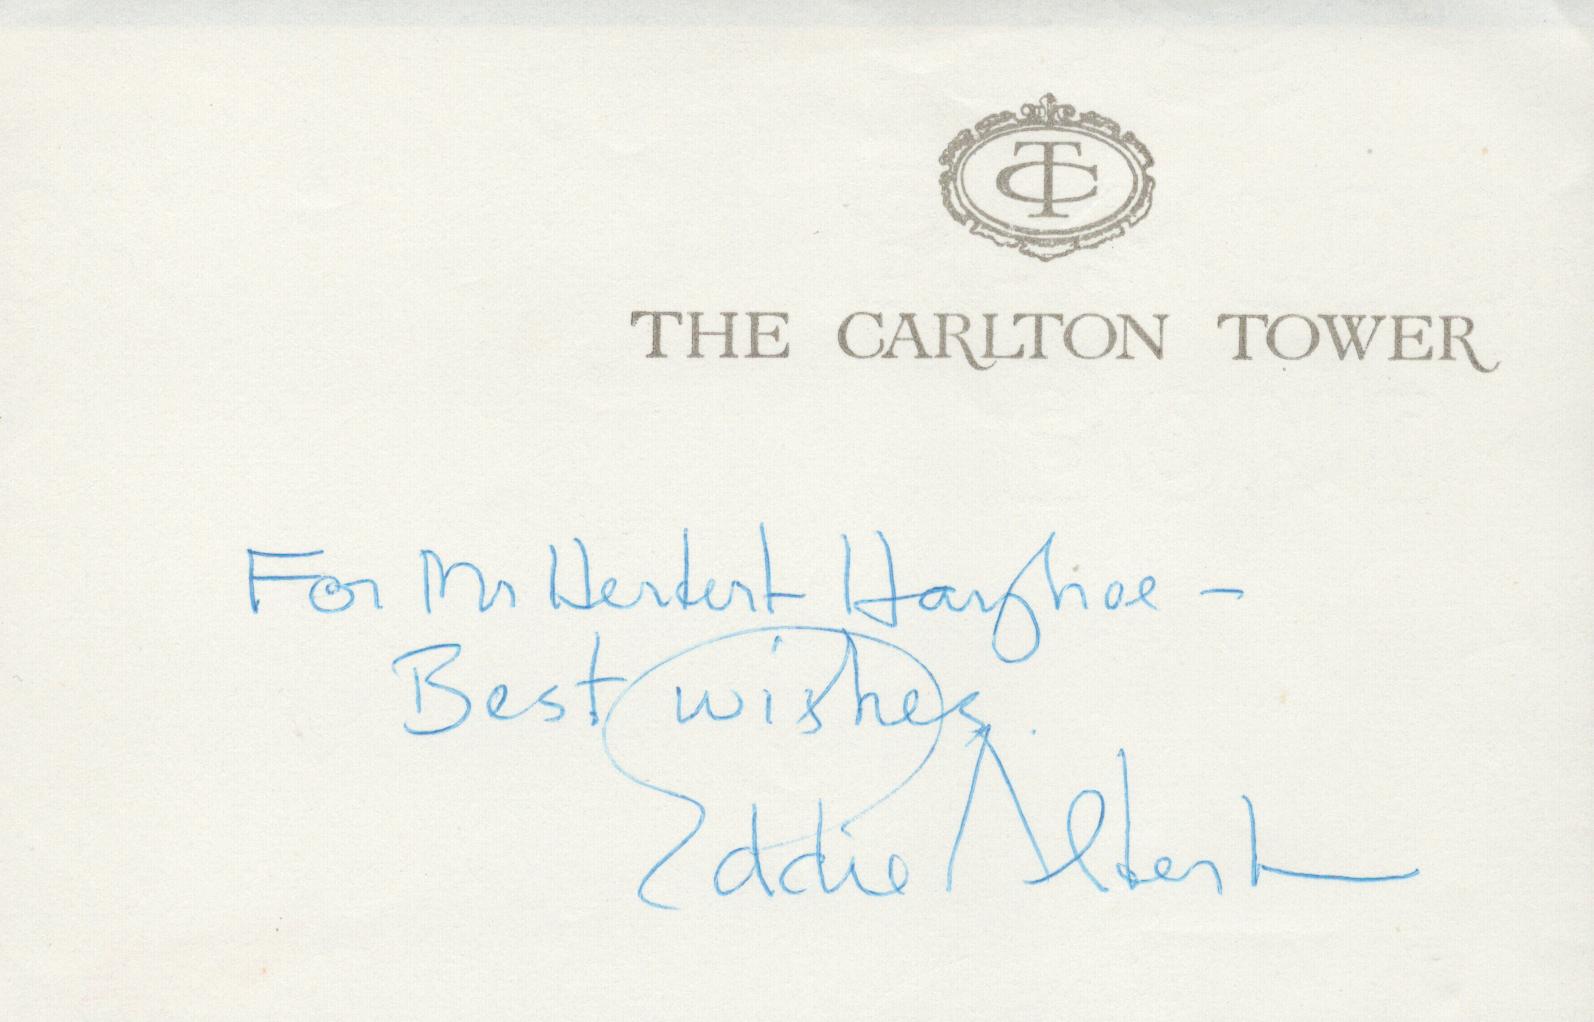 TC
THE CARLTON TOWER
For Mr Herbert Harghoe -
Best wishes.
Eddie Albert